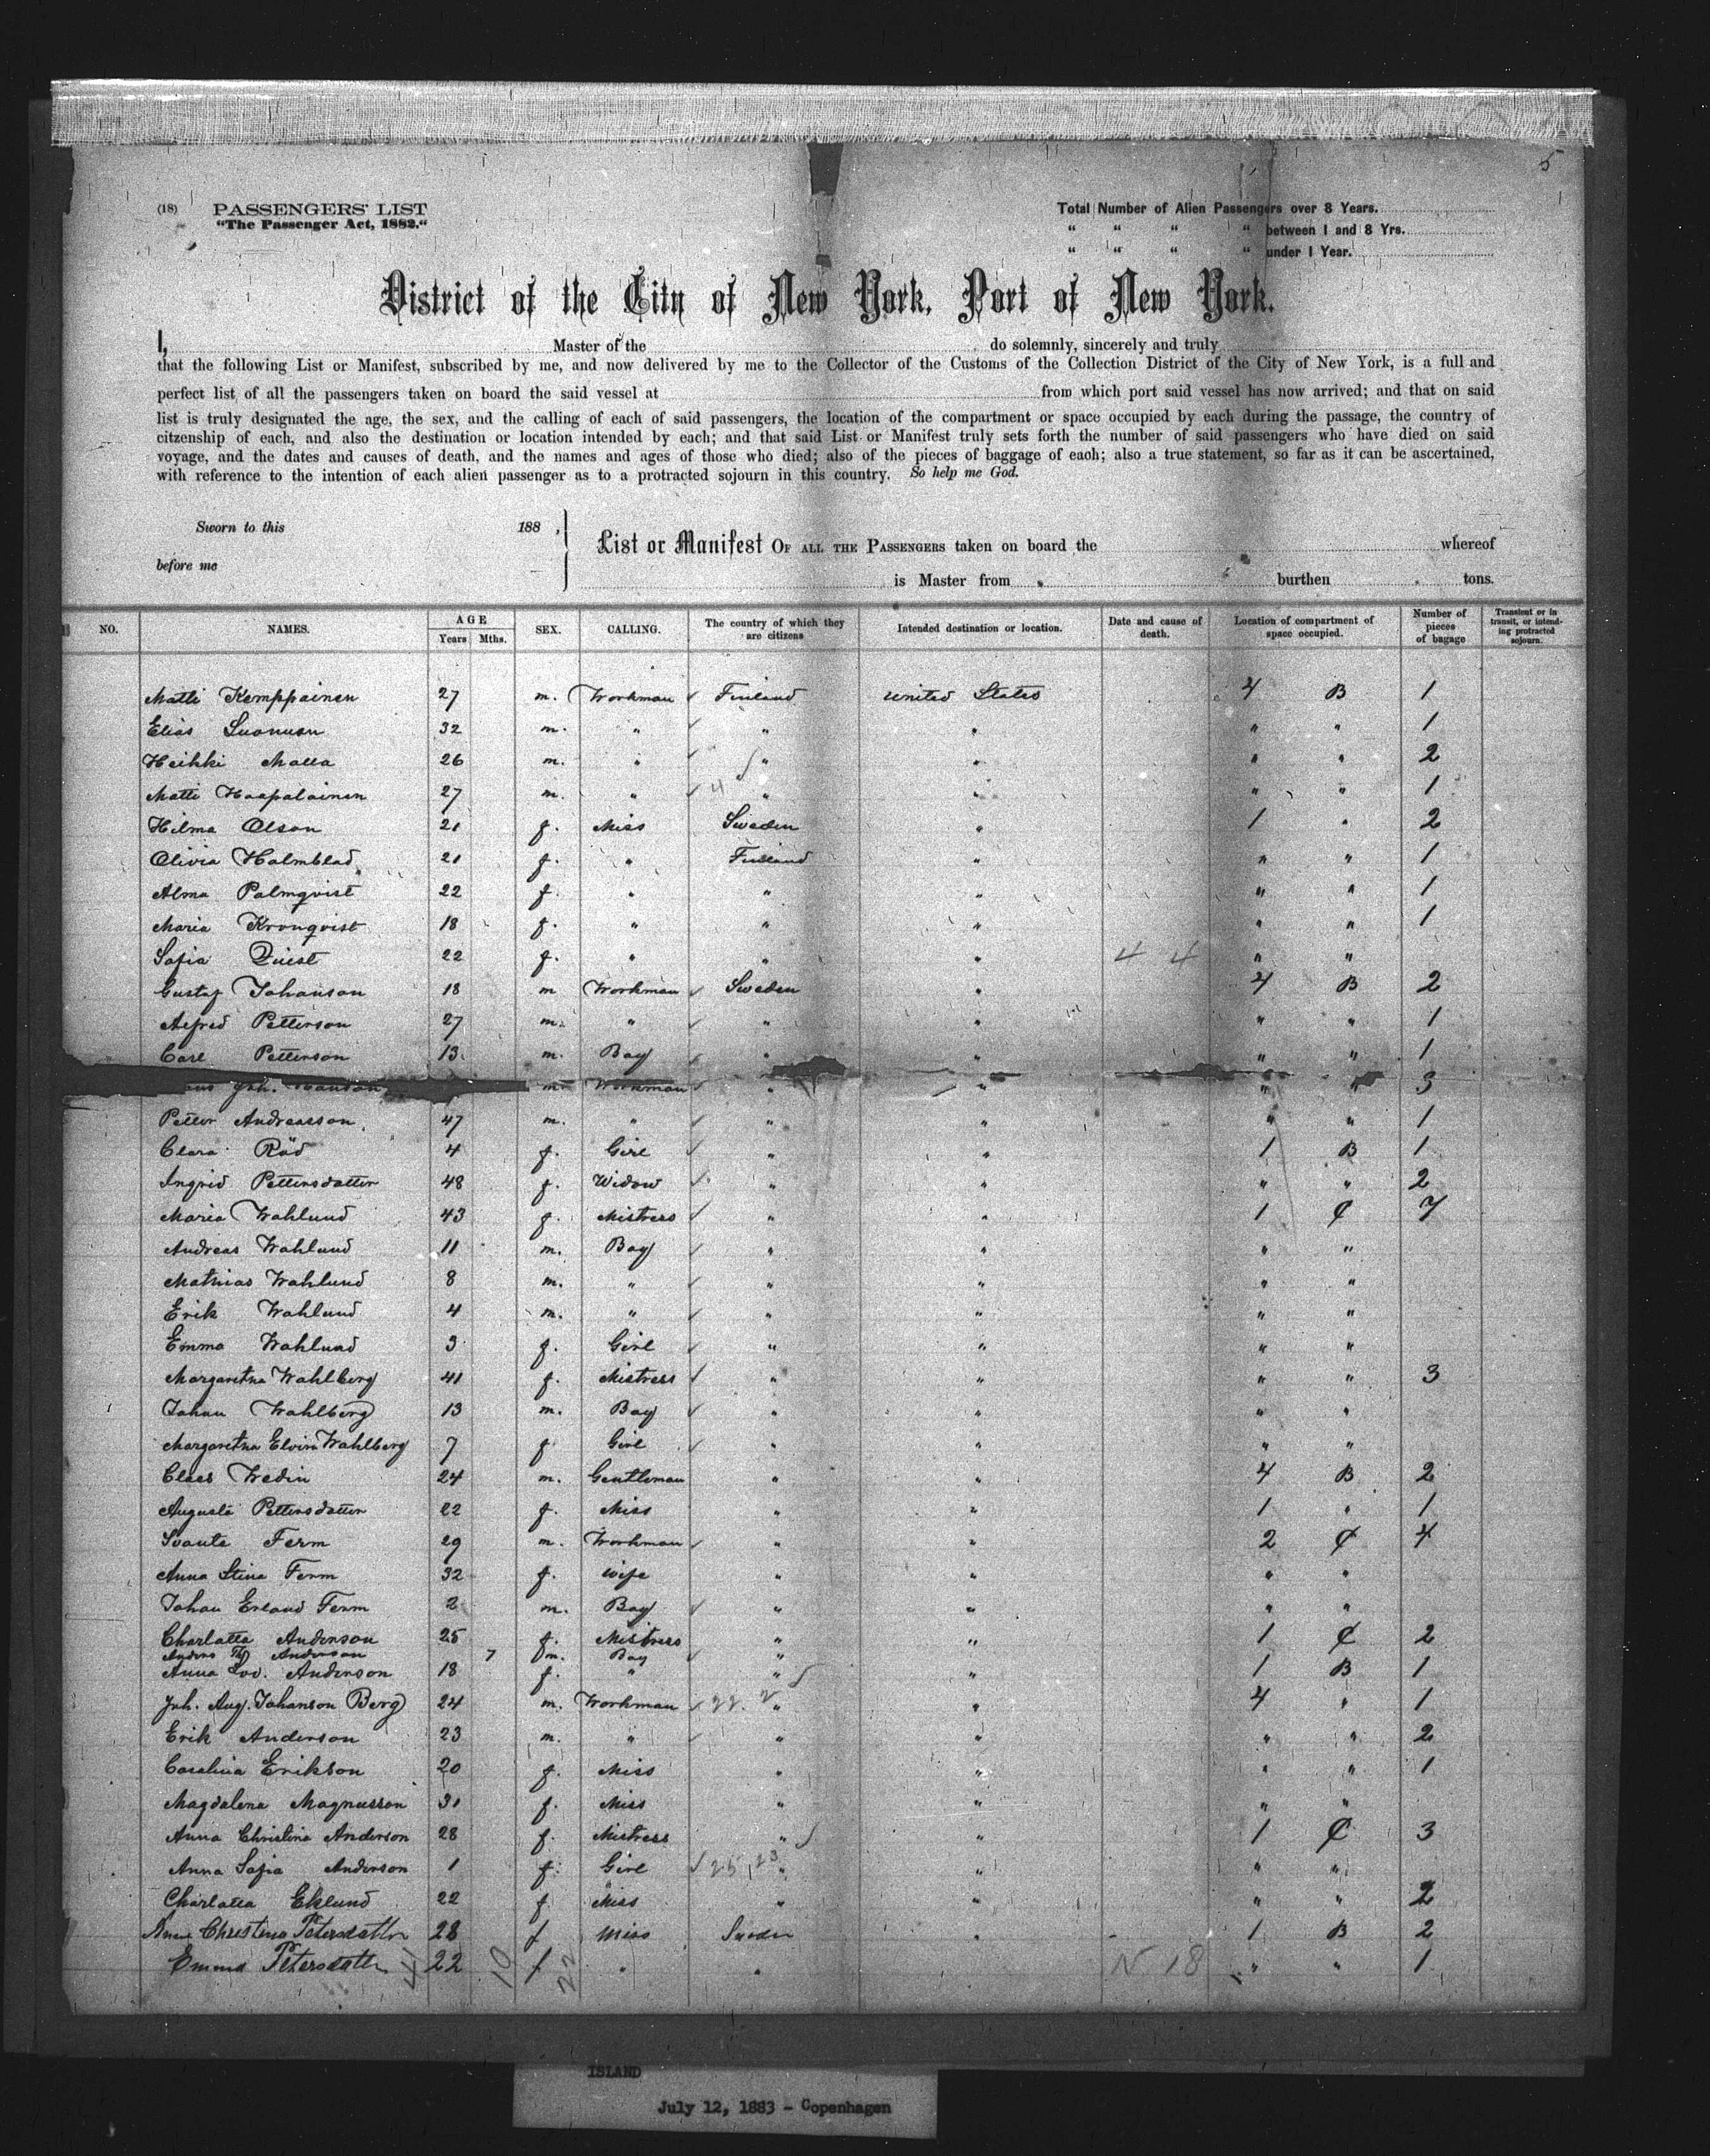 5
(18) PASSENGERS' LIST
"The Passenger Act, 1882."
Total Number of Alien Passengers over 8 Years.
" " " " between 1 and 8 Yrs.
" " " " under 1 Year.
District of the City of New York, Port of New York.
I, Master of the do solemnly, sincerely and truly
that the following List or Manifest, subscribed by me, and now delivered by me to the Collector of the Customs of the Collection District of the City of New York, is a full and
perfect list of all the passengers taken on board the said vessel at from which port said vessel has now arrived; and that on said
list is truly designated the age, the sex, and the calling of each of said passengers, the location of the compartment or space occupied by each during the passage, the country of
citzenship of each, and also the destination or location intended by each; and that said List or Manifest truly sets forth the number of said passengers who have died on said
voyage, and the dates and causes of death, and the names and ages of those who died; also of the pieces of baggage of each; also a true statement, so far as it can be ascertained,
with reference to the intention of each alien passenger as to a protracted sojourn in this country. So help me God.
Sworn to this 188 ,
before me
List or Manifest OF ALL THE PASSENGERS taken on board the whereof
is Master from burthen tons.
NO. NAMES. AGE Years Mths. SEX. CALLING. The country of which they are citizens Intended destination or location. Date and cause of death. Location of compartment of space occupied. Number of pieces of bagage Transient or in transit, or intending protracted sojourn.
Matti Kemppainen 27 m. Workman Finland United States 4 B 1
Elias 32 m. " " " " " 1
Heikki Malla 26 m. " " " " " 2
Matti Haapalainen 27 m. " " " " " 1
Hilma Olson 21 f. Miss Sweden " 1 " 2
Olivia Holmblad 21 f. " Finland " " " 1
Alma Palmqvist 22 f. " " " " " 1
Maria Kronqvist 18 f. " " " " " 1
Sofia Quist 22 f. " " " 4 4 " "
Gustaf Johanson 18 m Workman Sweden " 4 B 2
Alfred Petterson 27 m. " " " " " 1
Carl Petterson 13 m. Boy " " " " 1
Joh. m. Workman " " " " 3
Petter Andreasson 47 m. " " " " " 1
Clara Röd 4 f. Girl " " 1 B 1
Ingrid Pettersdatter 48 f. Widow " " " " 2
Maria Wahlund 43 f. Mistress " " 1 C 7
Andreas Wahlund 11 m. Boy " " " "
Mathias Wahlund 8 m. " " " " "
Erik Wahlund 4 m. " " " " "
Emma Wahlund 3 f. Girl " " " "
Margaretha Wahlberg 41 f. Mistress " " " " 3
Johan Wahlberg 13 m. Boy " " " "
Margaretha Elvira Wahlberg 7 f Girl " " " "
Claes Wedin 24 m. Gentleman " " 4 B 2
Augusta Pettersdatter 22 f. Miss " " 1 " 1
Svante Ferm 29 m. Workman " " 2 C 4
Anna Stina Ferm 32 f. Wife " " " "
Johan Erland Ferm 2 m. Boy " " " "
Charlatta Anderson 25 f. Mistress " " 1 C 2
Anders Anderson 7 m. Boy "
Anna Lov. Anderson 18 f. " " " 1 B 1
Joh. Aug. Johanson Berg 24 m. Workman 22. 2 " " 4 " 1
Erik Anderson 23 m. " " " " " 2
Carolina Erikson 20 f. Miss " " " " 1
Magdalena Magnusson 31 f. Miss " " " "
Anna Christina Anderson 28 f. Mistress " " 1 C 3
Anna Sofia Anderson 1 f. Girl 25, 23 " " " "
Charlatta Eklund 22 f. Miss " " " " 2
Anna Christina Petersdatter 28 f Miss Sweden " 1 B 2
Emma Petersdatter 22 10 f 22 " " N 18 " " 1
ISLAND
July 12, 1883 - Copenhagen